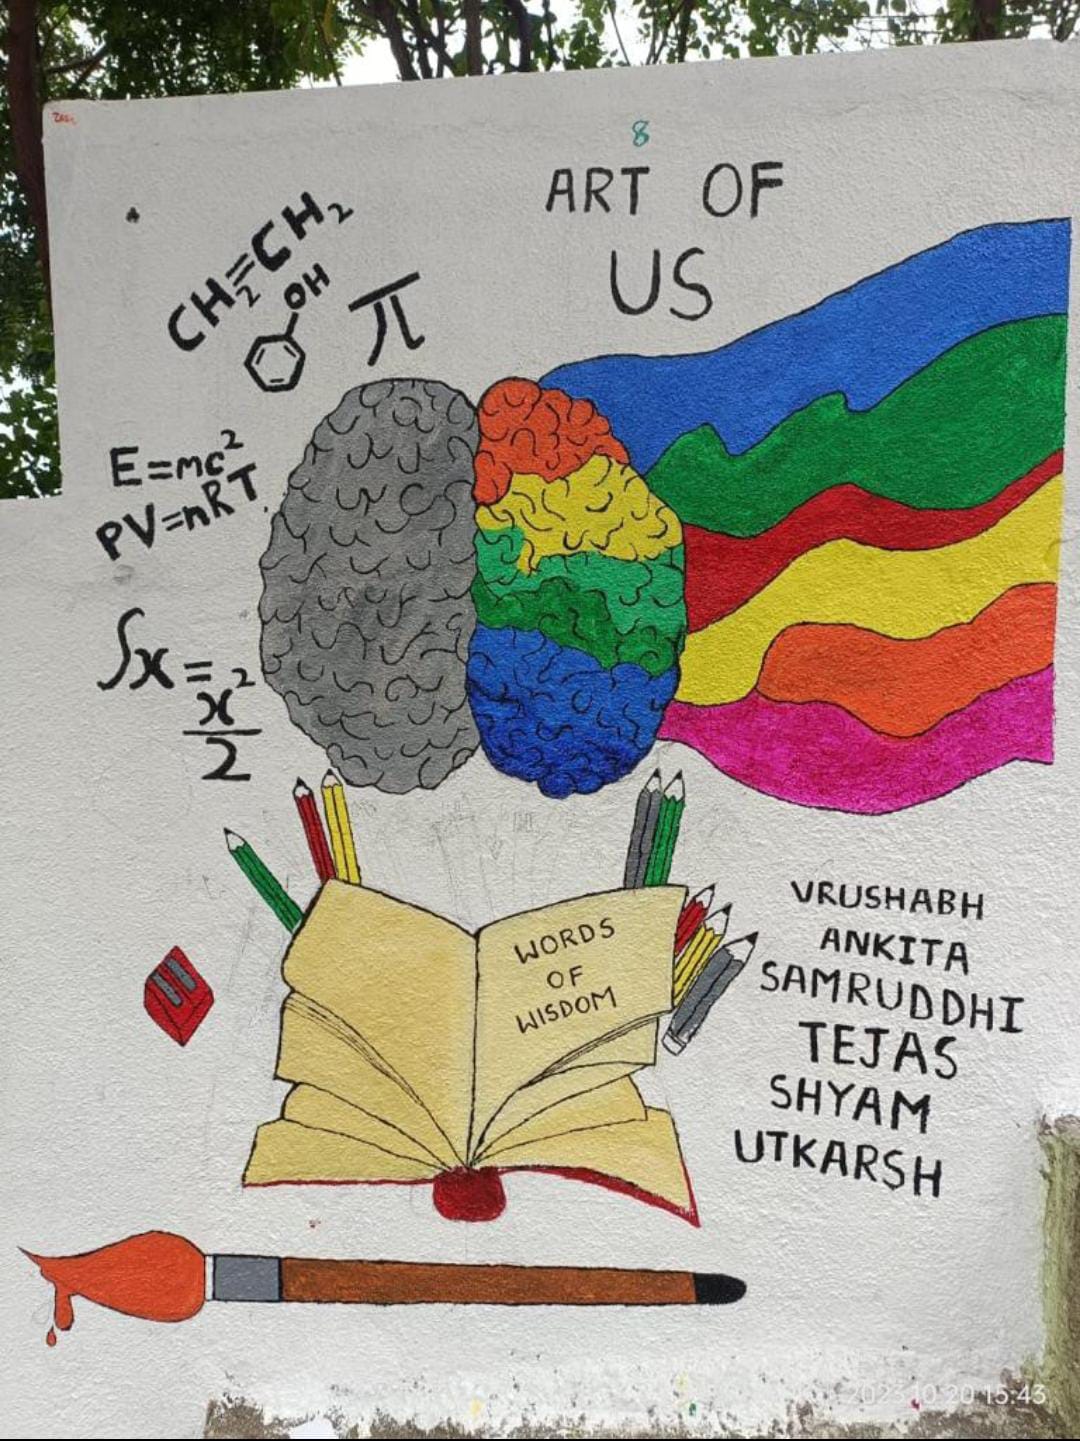 8
ART OF
US
CH₂=CH₂
OH
π
E=mc²
PV=nRT
∫x = x²/2
WORDS
OF
WISDOM
VRUSHABH
ANKITA
SAMRUDDHI
TEJAS
SHYAM
UTKARSH
2023.10.20 15:43